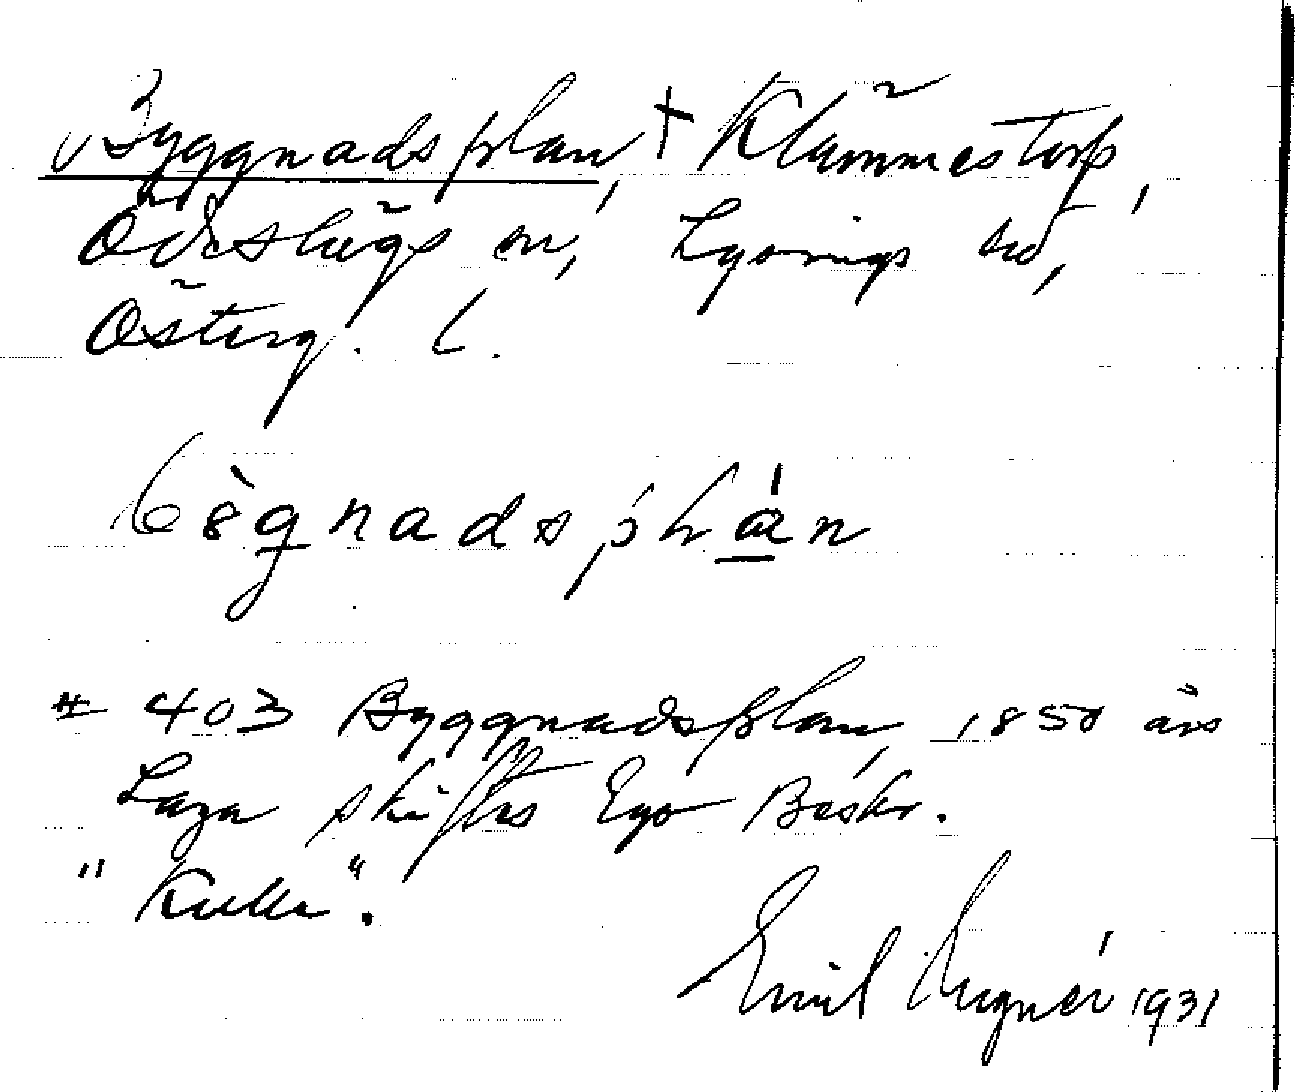 Byggnadsplan, + Klämmestorp,
Ödeshögs sn, Lysings hd,
Österg. l.
# 403 Byggnadsplan, 1850 års
Laga skiftes Ego Beskr.
"Kulle".
Emil 1931